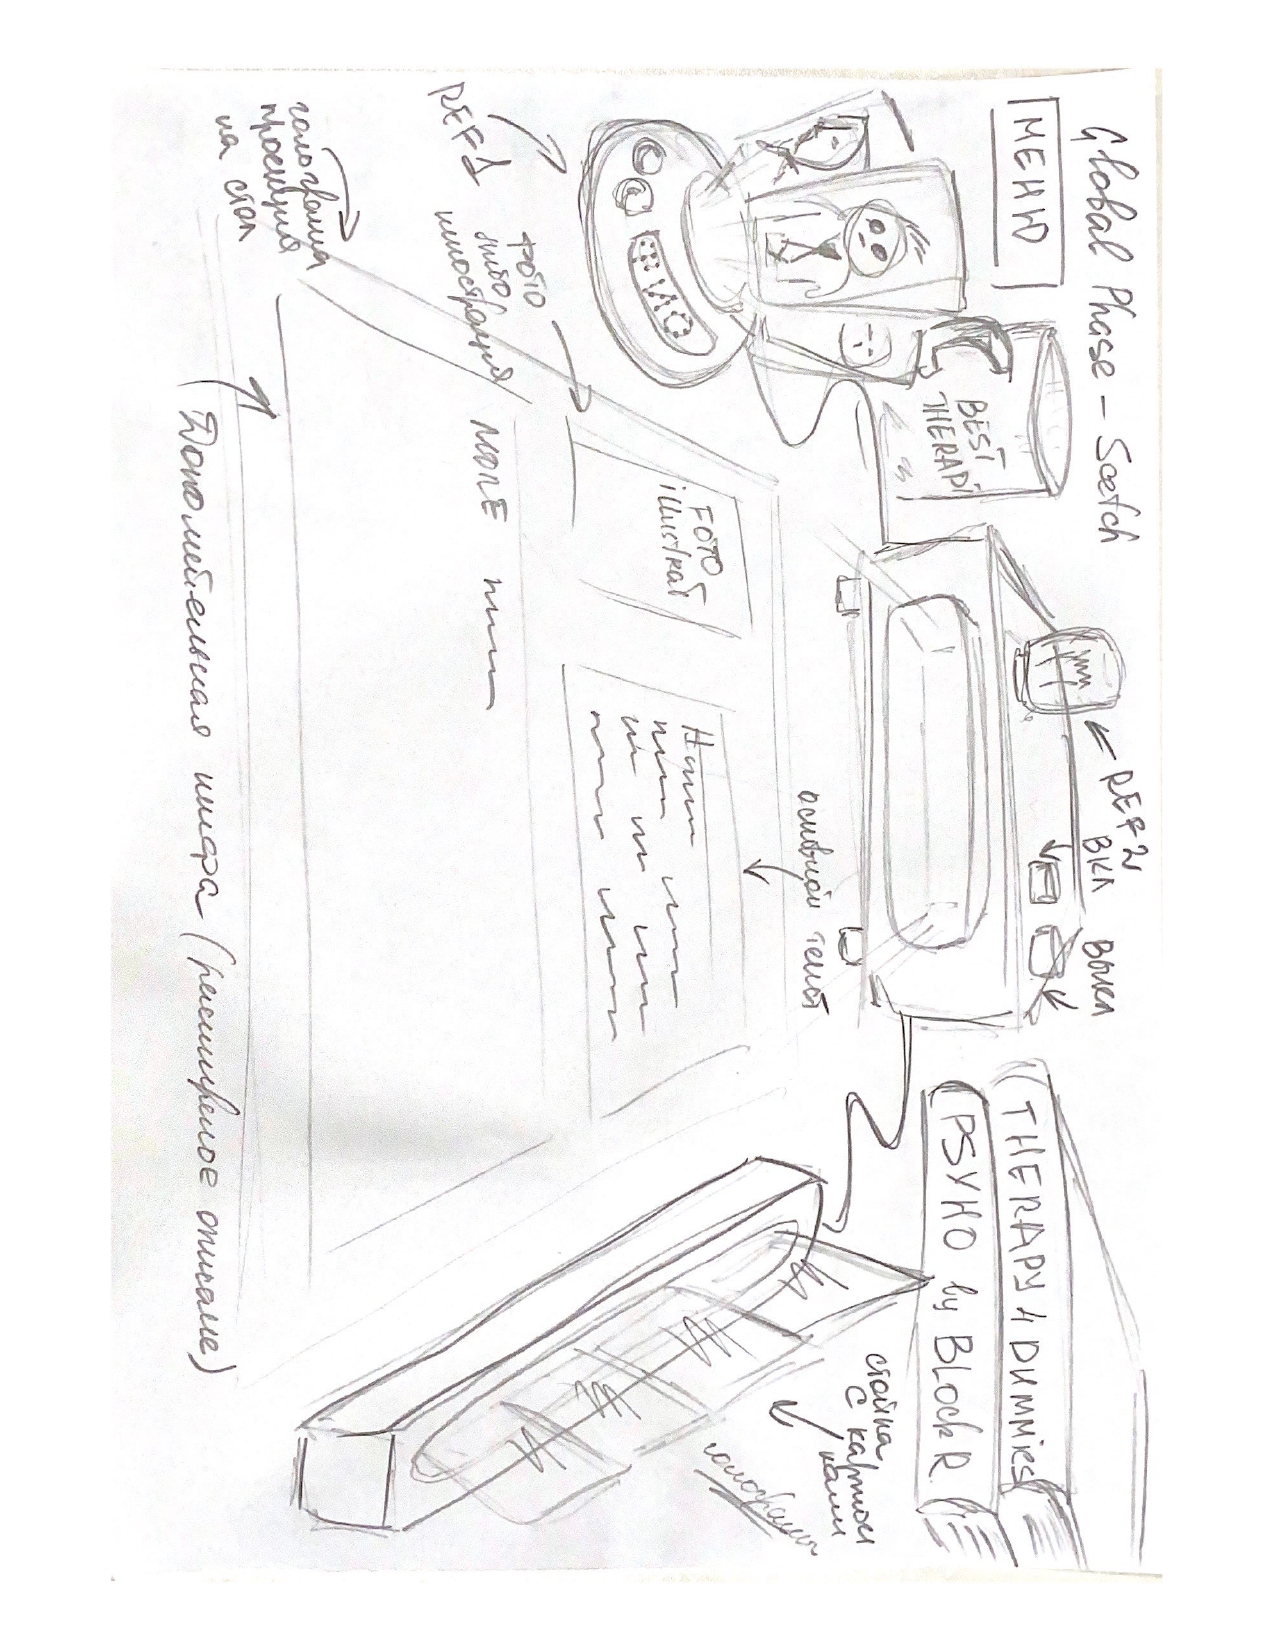 Global Phase – Scetch
МЕНЮ
BEST
THERAPI
REF 2
ВКЛ
ВЫКЛ
THERAPY 4 DUMMiES
PSYHO by BLockR
стойка
с карточ
ками
голограммы
основной текст
FOTO
illustrat
ФИО
REF 1
фото
либо
MORE
голограмма
проекция
на стол
Дополнительная инфа (расширеное описание)